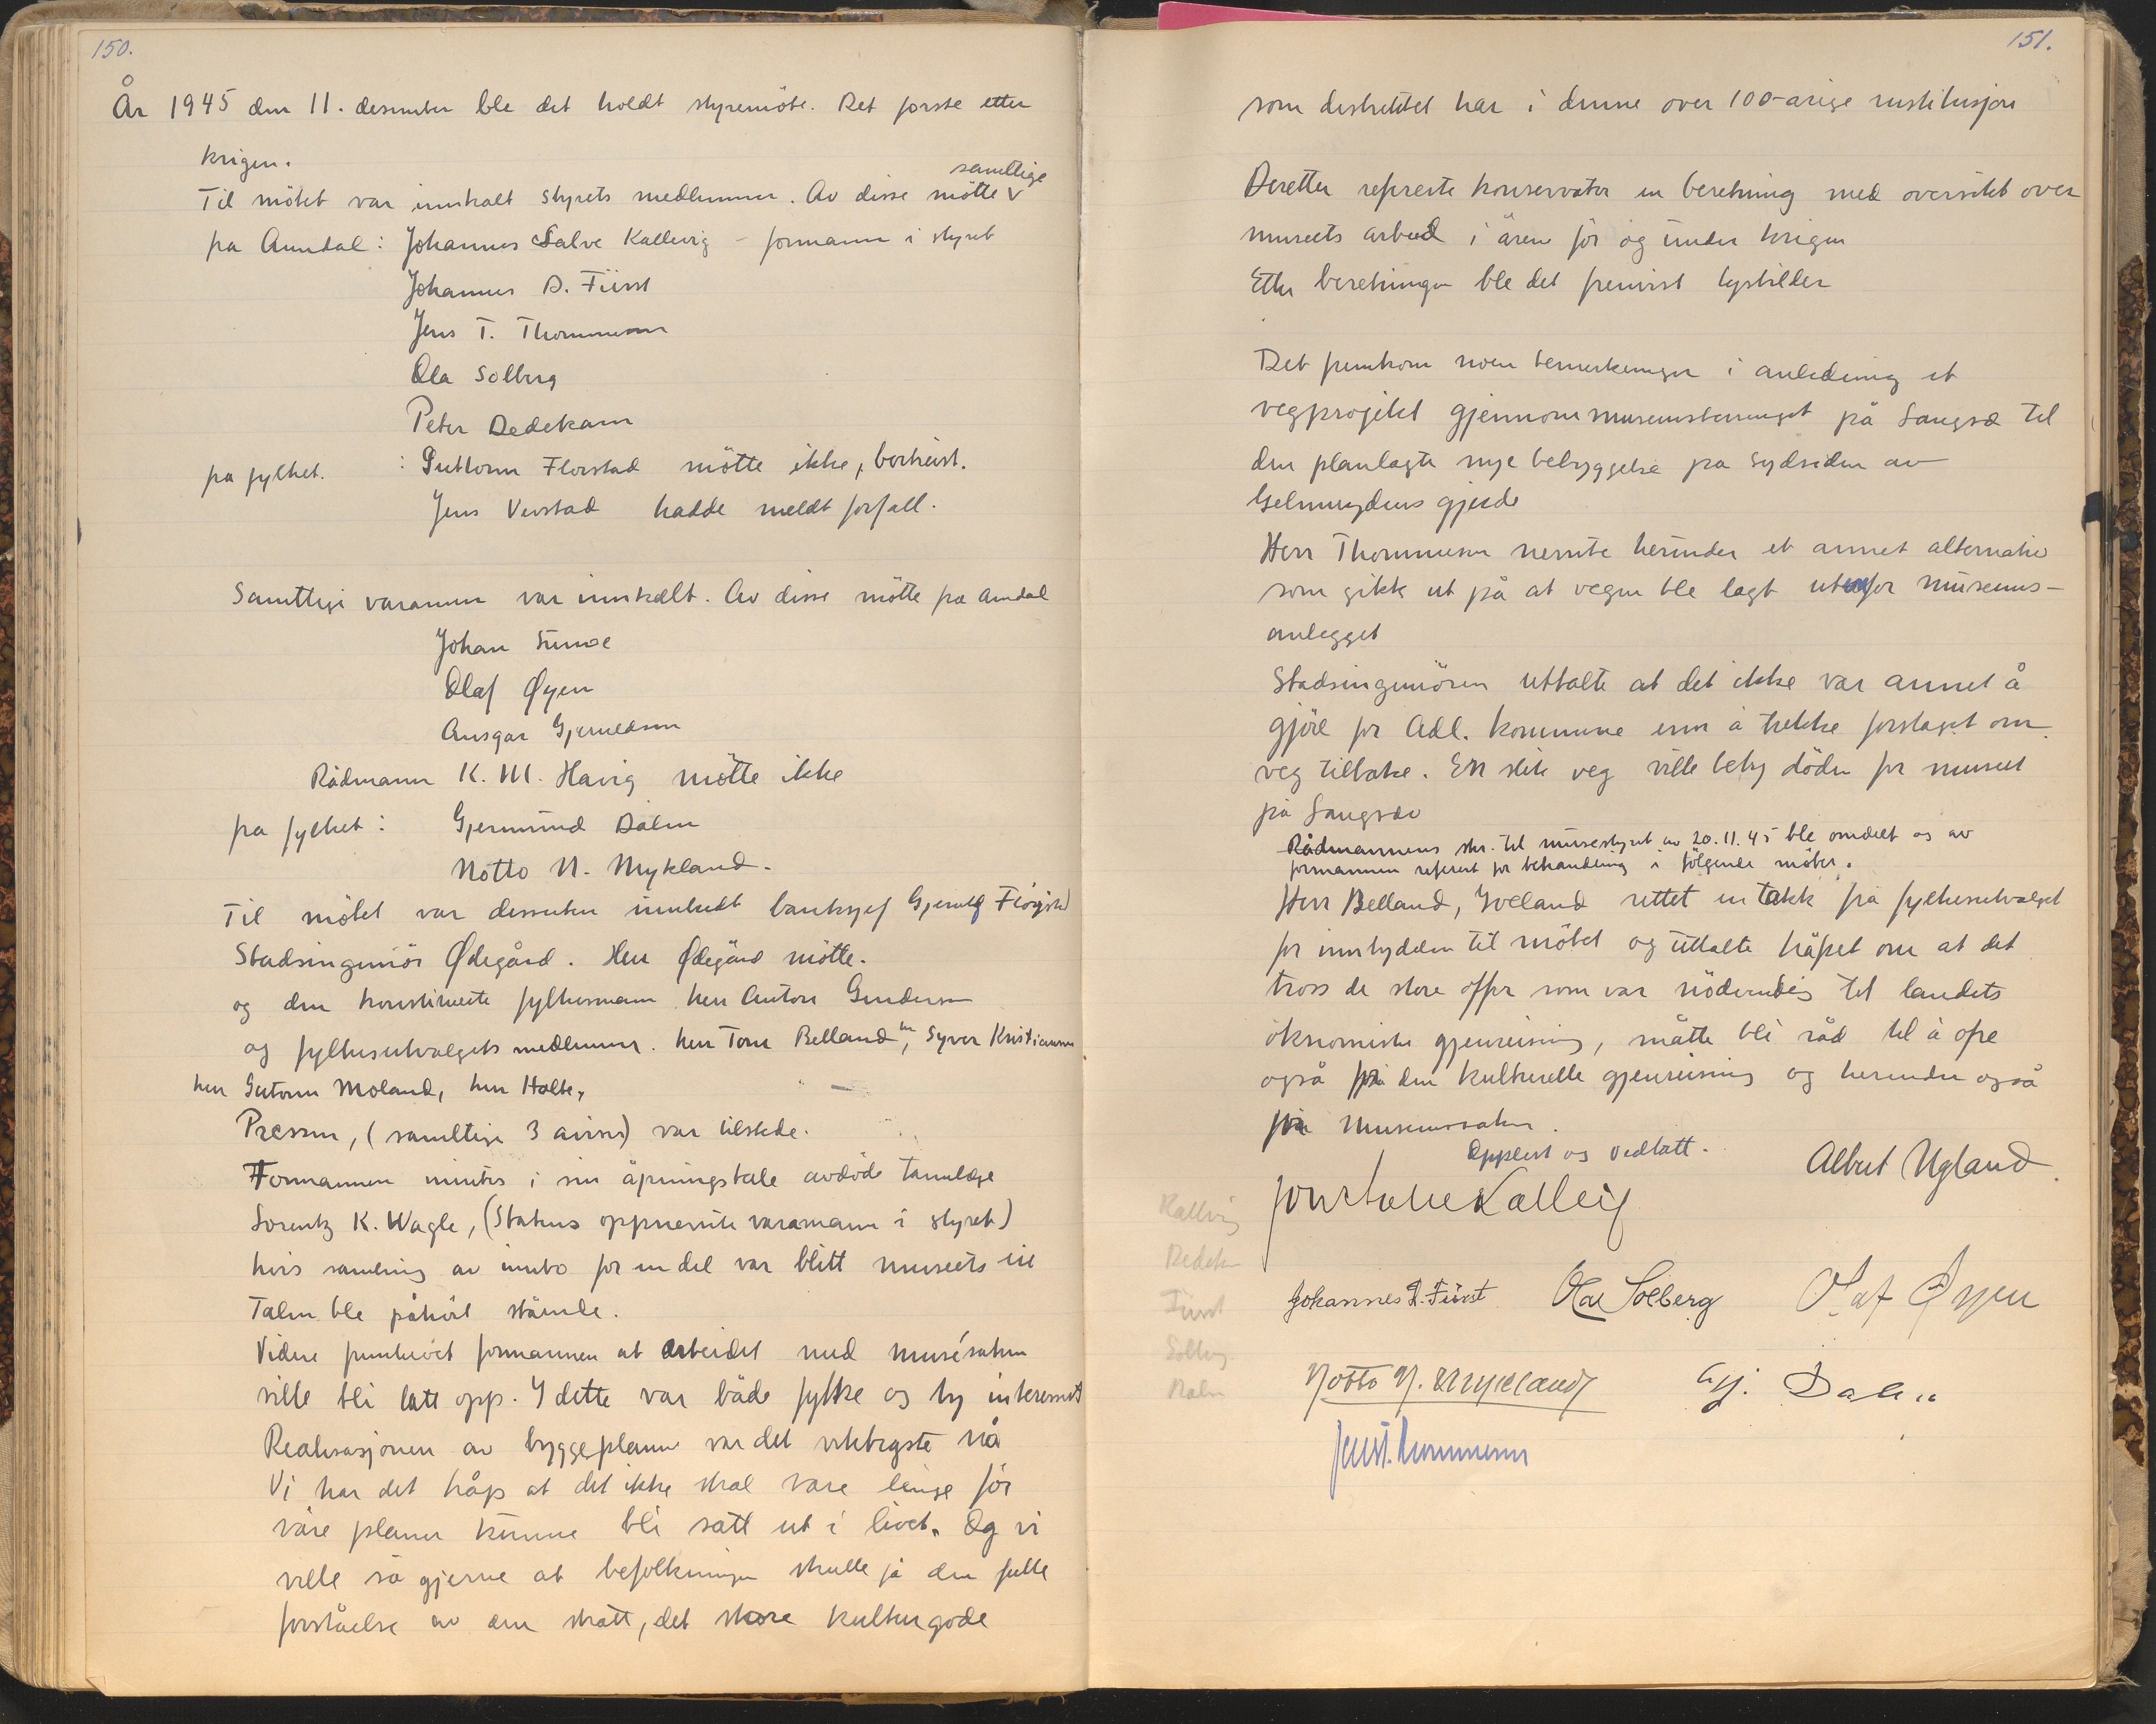 150.
År 1945 den 11. desember ble det holdt styremöte. Det första etter
krigen.
samtlige
Til mötet var innkalt styrets medlemmer. Av disse mötte
fra Arendal: Johannes Salve Kallevig - formann i styret
Johannes D. Fürst
Jens T. Thommesen
Ola Solberg
Peter Dedekam
fra fylket. : Guttorm Florstad mötte ikke, bortreist.
Jens Vevstad hadde meldt forfall.
Samtlige varamenn var innkalt. Av disse mötte fra Arendal
Johan Sunde
Olaf Øyen
Ansgar Gjerueldsen
Rådmann K. M. Havig mötte ikke
fra fylket: Gjermund Dalen
Notto N. Mykland.
Til mötet var dessuten innbudt banksjef
Stadsingeniör Ødegård. Herr Ødegård mötte.
og den konstituerte fylkesmann herr Anton Gundersen
og fylkesutvalgets medlemmer. herr Tom Belland, hr Syver Kristiansen
herr Gutorm Moland, herr Holte,
Pressen, (samtlige 3 aviser) var tilstede.
Formannen mintes i sin åpningstale avdöde tannlæge
Lorentz K. Wagle, (Statens oppnevnte varamann i styret)
hvis samling av innbo for en del var blitt museets eie
Talen ble påhört stående.
Videre fremhevet formannen at arbeidet med musésaken
ville bli tatt opp. I dette var både fylke og by interessert
Realisasjonen av byggeplanene var det viktigste nå
Vi har det håp at det ikke skal vare lenge för
våre planer kunne bli satt ut i livet. Og vi
ville så gjerne at befolkningen skulle få den fulle
forståelse av den skatt, det store kulturgode
151.
som destriktet har i denne over 100-årige institusjon
Deretter refererte konservator en beretning med oversikt over
museets arbeid i årene för og under krigen
Etter beretningen ble det fremvist lysbilder
Det fremkom noen bemerkninger i anledning et
vegprojekt gjennom museumsterrenget på Langsæ til
den planlagte nye bebyggelse på sydsiden av
gjerde
Herr Thommesen nevnte herunder et annet alternativ
som gikk ut på at vegen ble lagt utenfor museums-
anlegget
Stadsingeniören uttalte at det ikke var annet å
gjöre for Adl. kommune enn å trekke forslaget om
veg tilbake. En slik veg ville bety döden for museet
på Langsæ
Rådmannens skr. til musestyret av 20.11.45 ble omdelt og av
formannen referert for behandling i fölgende möter.
Herr Belland, Iveland rettet en takk fra fylkesutvalget
for innbydelsen til mötet og uttalte håpet om at det
tross de store offer som var nödvendig til landets
ökonomiske gjenreisning, måtte bli råd til å ofre
også på den kulturelle gjenreisning og herunder også
på museumssaken.
Opplest og vedtatt.
Albert Ugland
Kallevig
Dedekam
Fürst
Solberg.
Dalen
Johannes D. Fürst Ola Solberg Olaf Øyen
Notto N. Mykland Gj. Dalen
Jens T. Thommesen